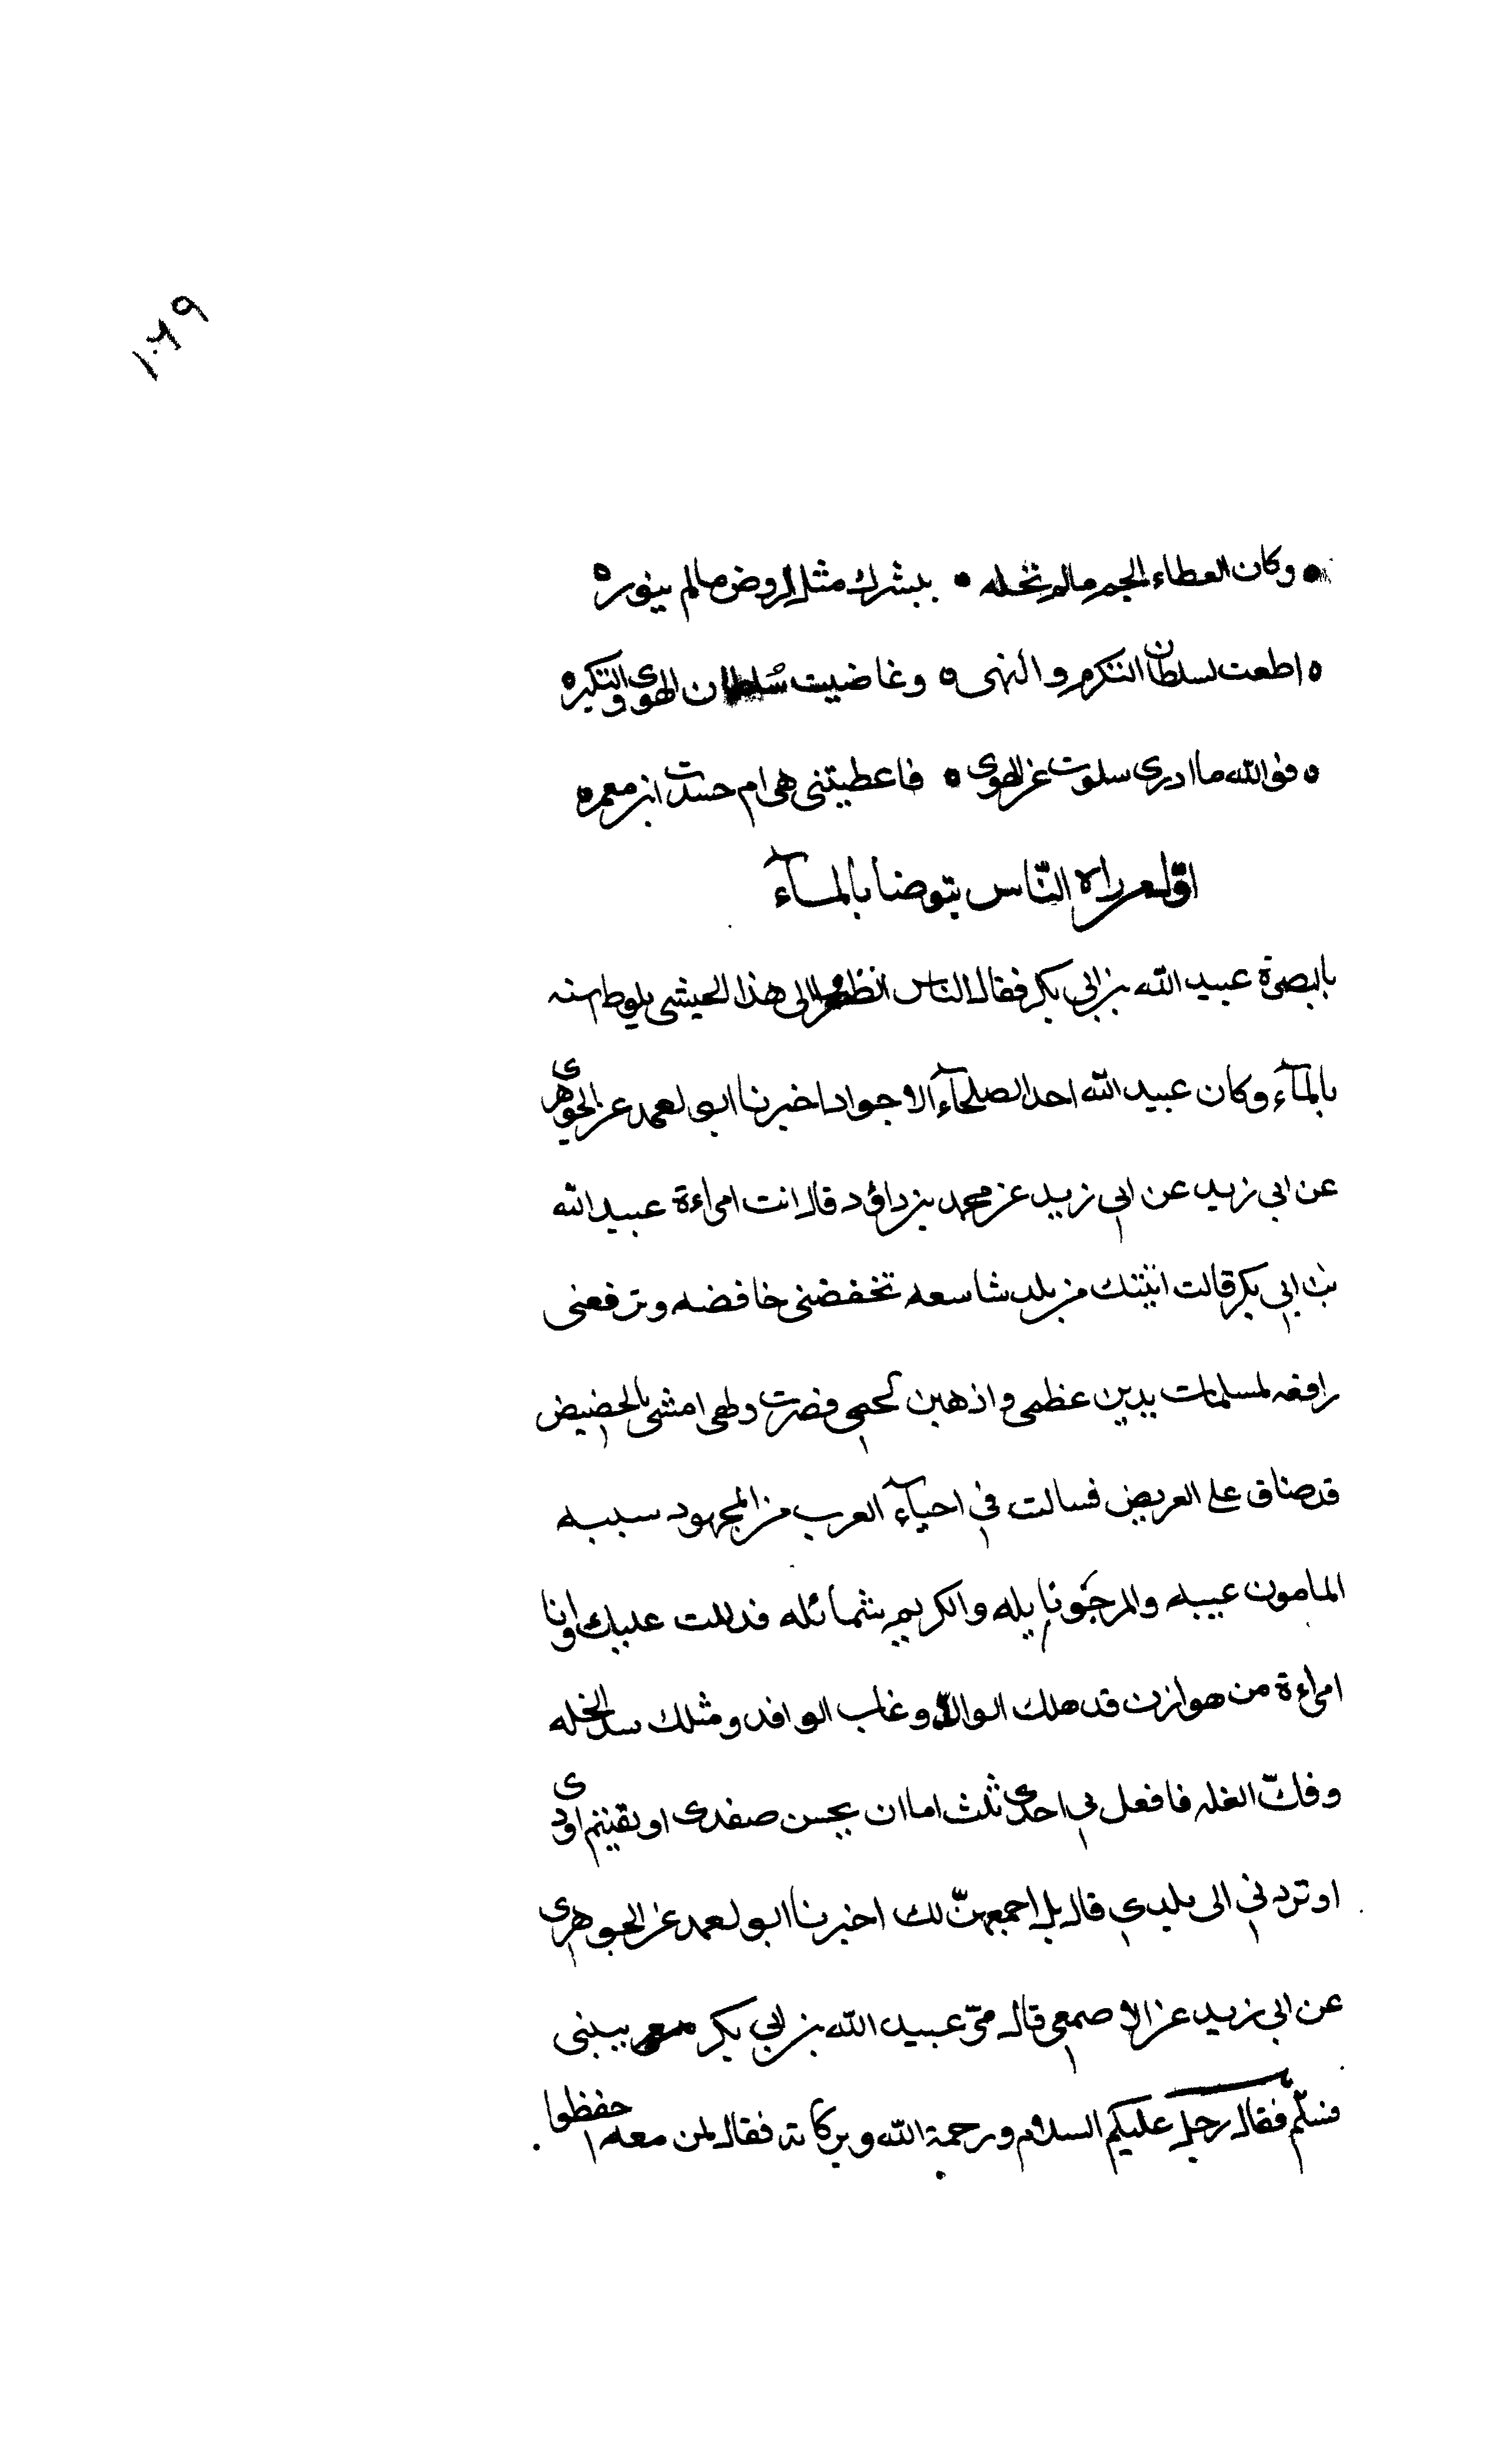 ١٠٦٩
وكان العطاء الجم مالم تحله ٥ ببشرك مثل الروض مالم ينوره
٥ اطعت لسلطان التكرم والنهى ٥ وغاضيت سلطان الهوى والتكبره
٥ فوالله ما ادرى سلوت عن الهوى ٥ فاعطيتنى هى ام حسدت ابن معمره
اول من راه الناس يتوضا بالمآء
بالبصرة عبيد الله بن ابي بكر فقال الناس انظروا الى هذا الحبشى يلوط استه
بالمآء وكان عبيد الله احد الصلحآء الاجواد اخبرنا ابو احمد عن الجوهرى
عن ابي زيد عن ابي زيد عن محمد بن داؤد قال اتت امراءة عبيد الله
بن ابي بكر قالت اتيتك من بلد شاسعه تخفضنى خافضه وترفعنى
رافعه لمسلمات يدين عظمى واذهبن لحمي فصرت ولهى امشى بالحضيض
قد ضاق على العريض فسالت في احيآء العرب من المجهود سببه
المامون عيبه والمرجو نايله والكريم شمائله فدللت عليك وانا
امراءة من هوازن قد هلك الوالد وغاب الوافد ومثلك سد الخله
وفك الغله فافعل بي احدى ثلث اما ان يحسن صفدى او تقيم اودى
او تردني الى بلدي قال بل اجمعهن لك اخبرنا ابو احمد عن الجوهرى
عن ابي زيد عن الاصمعي قال مر عبيد الله بن ابي بكر ببنى
فسلم فقال رجل عليكم السلام ورحمة الله وبركاته فقال لمن معه احفظوا